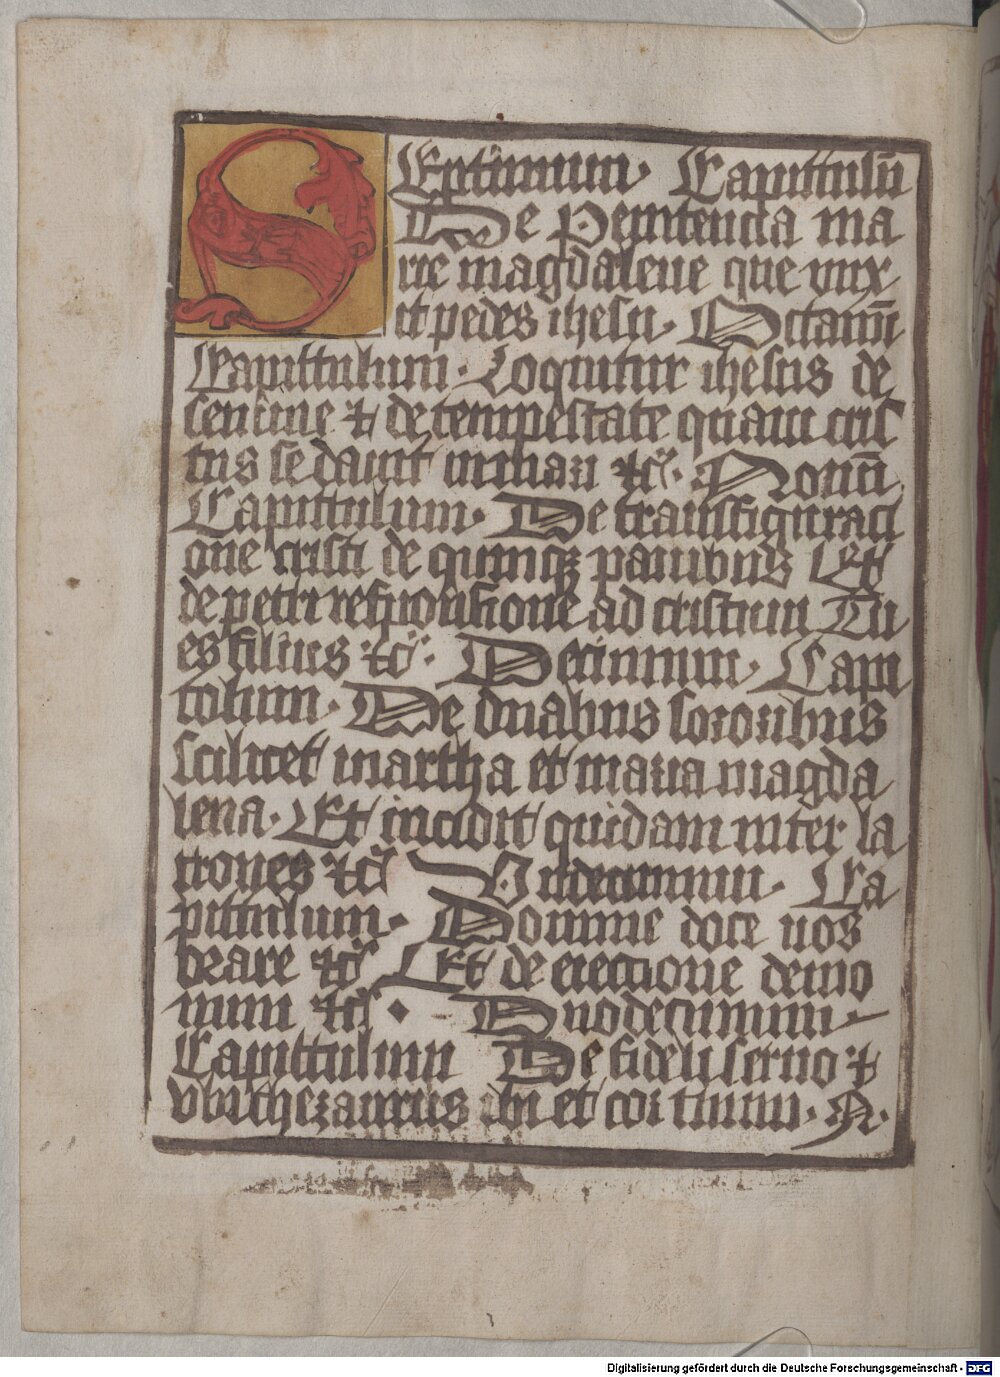 SEptimum. Capittulū
De Penitencia ma
rie magdalene que vnx
it pedes ihesu. Octauū
Capittulum. Loquitur ihesus de
semine & de tempestate quam cris
tus sedauit in mari &c̄. Nonū
Capittulum. De transfiguraci
one cristi de quinqꝫ panibus Et
de petri responsione ad cristum Tu
es filius &c̄. Decimum. Capi
tolum. De duabus sororibus
scilicet martha et maria magda
lena. Et incidit quidam inter la
trones &c̄ Vndecimum. Ca
pittulum. Domine doce nos
orare &c̄ Et de eiectione demo
num &c̄. Duodecimum.
Capittulum De fideli seruo &
vbi thezaurus ibi et cor tuum. A.
Digitalisierung gefördert durch die Deutsche Forschungsgemeinschaft - DFG